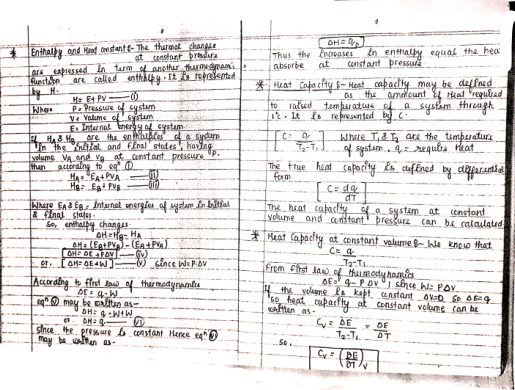 * Enthalpy and Heat constant :- The thermal changes
at constant pressure
are expressed in term of another thermodynamic
function are called enthalpy. It is represented
by H.
H = E + PV —(I)
Where P = Pressure of system
V = Volume of system
E = Internal energy of system.
If HA & HB are the enthalpies of a system
in the initial and final states, having
volume VA and VB at constant pressure P.
then according to eqⁿ (I)
HA = EA + PVA —(II)
HB = EB + PVB —(III)
Where EA & EB = Internal energies of system in initial
& final states.
So, enthalpy changes
ΔH = HB - HA
ΔH = (EB + PVB) - (EA + PVA)
ΔH = ΔE + PΔV —(IV)
or. ΔH = ΔE + W —(V) Since W = P.ΔV
According to first law of thermodynamics
ΔE = q - W
eqⁿ (V) may be written as -
ΔH = q - W + W
or ΔH = q —(VI)
Since the pressure is constant Hence eqⁿ (VI)
may be written as -
ΔH = qp
Thus the increases in enthalpy equal the hea
absorbe at constant pressure
* Heat Capacity :- Heat capacity may be defined
as the amount of Heat required
to raised temperature of a system through
1°C. It is represented by C.
C = q / T2 - T1 Where T1 & T2 are the temperature
of system. q = requir heat
The true heat capacity is defined by differential
form
C = dq / dT
The heat capacity of a system at constant
volume and constant pressure can be calculated
* Heat Capacity at constant volume :- We know that
C = q / T2 - T1
From first law of thermodynamics
ΔE = q - P.ΔV, since W = P.ΔV
If the volume is kept constant ΔV=0 So ΔE=q
so heat capacity at constant volume can be
written as -
Cv = ΔE / T2 - T1 = ΔE / ΔT
So,
Cv = (ΔE / ΔT)v